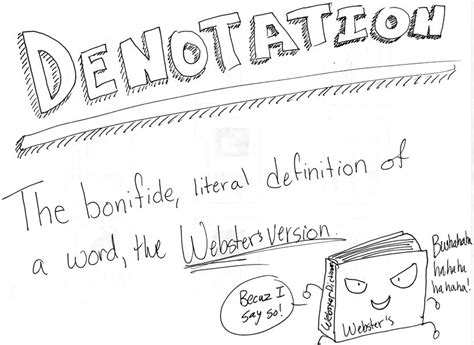 DENOTATION
The bonifide, literal definition of
a word, the Webster's version.
Becuz I
say so!
Webster Dictionary
Webster's
Bwahahaha
hahaha
hahaha!